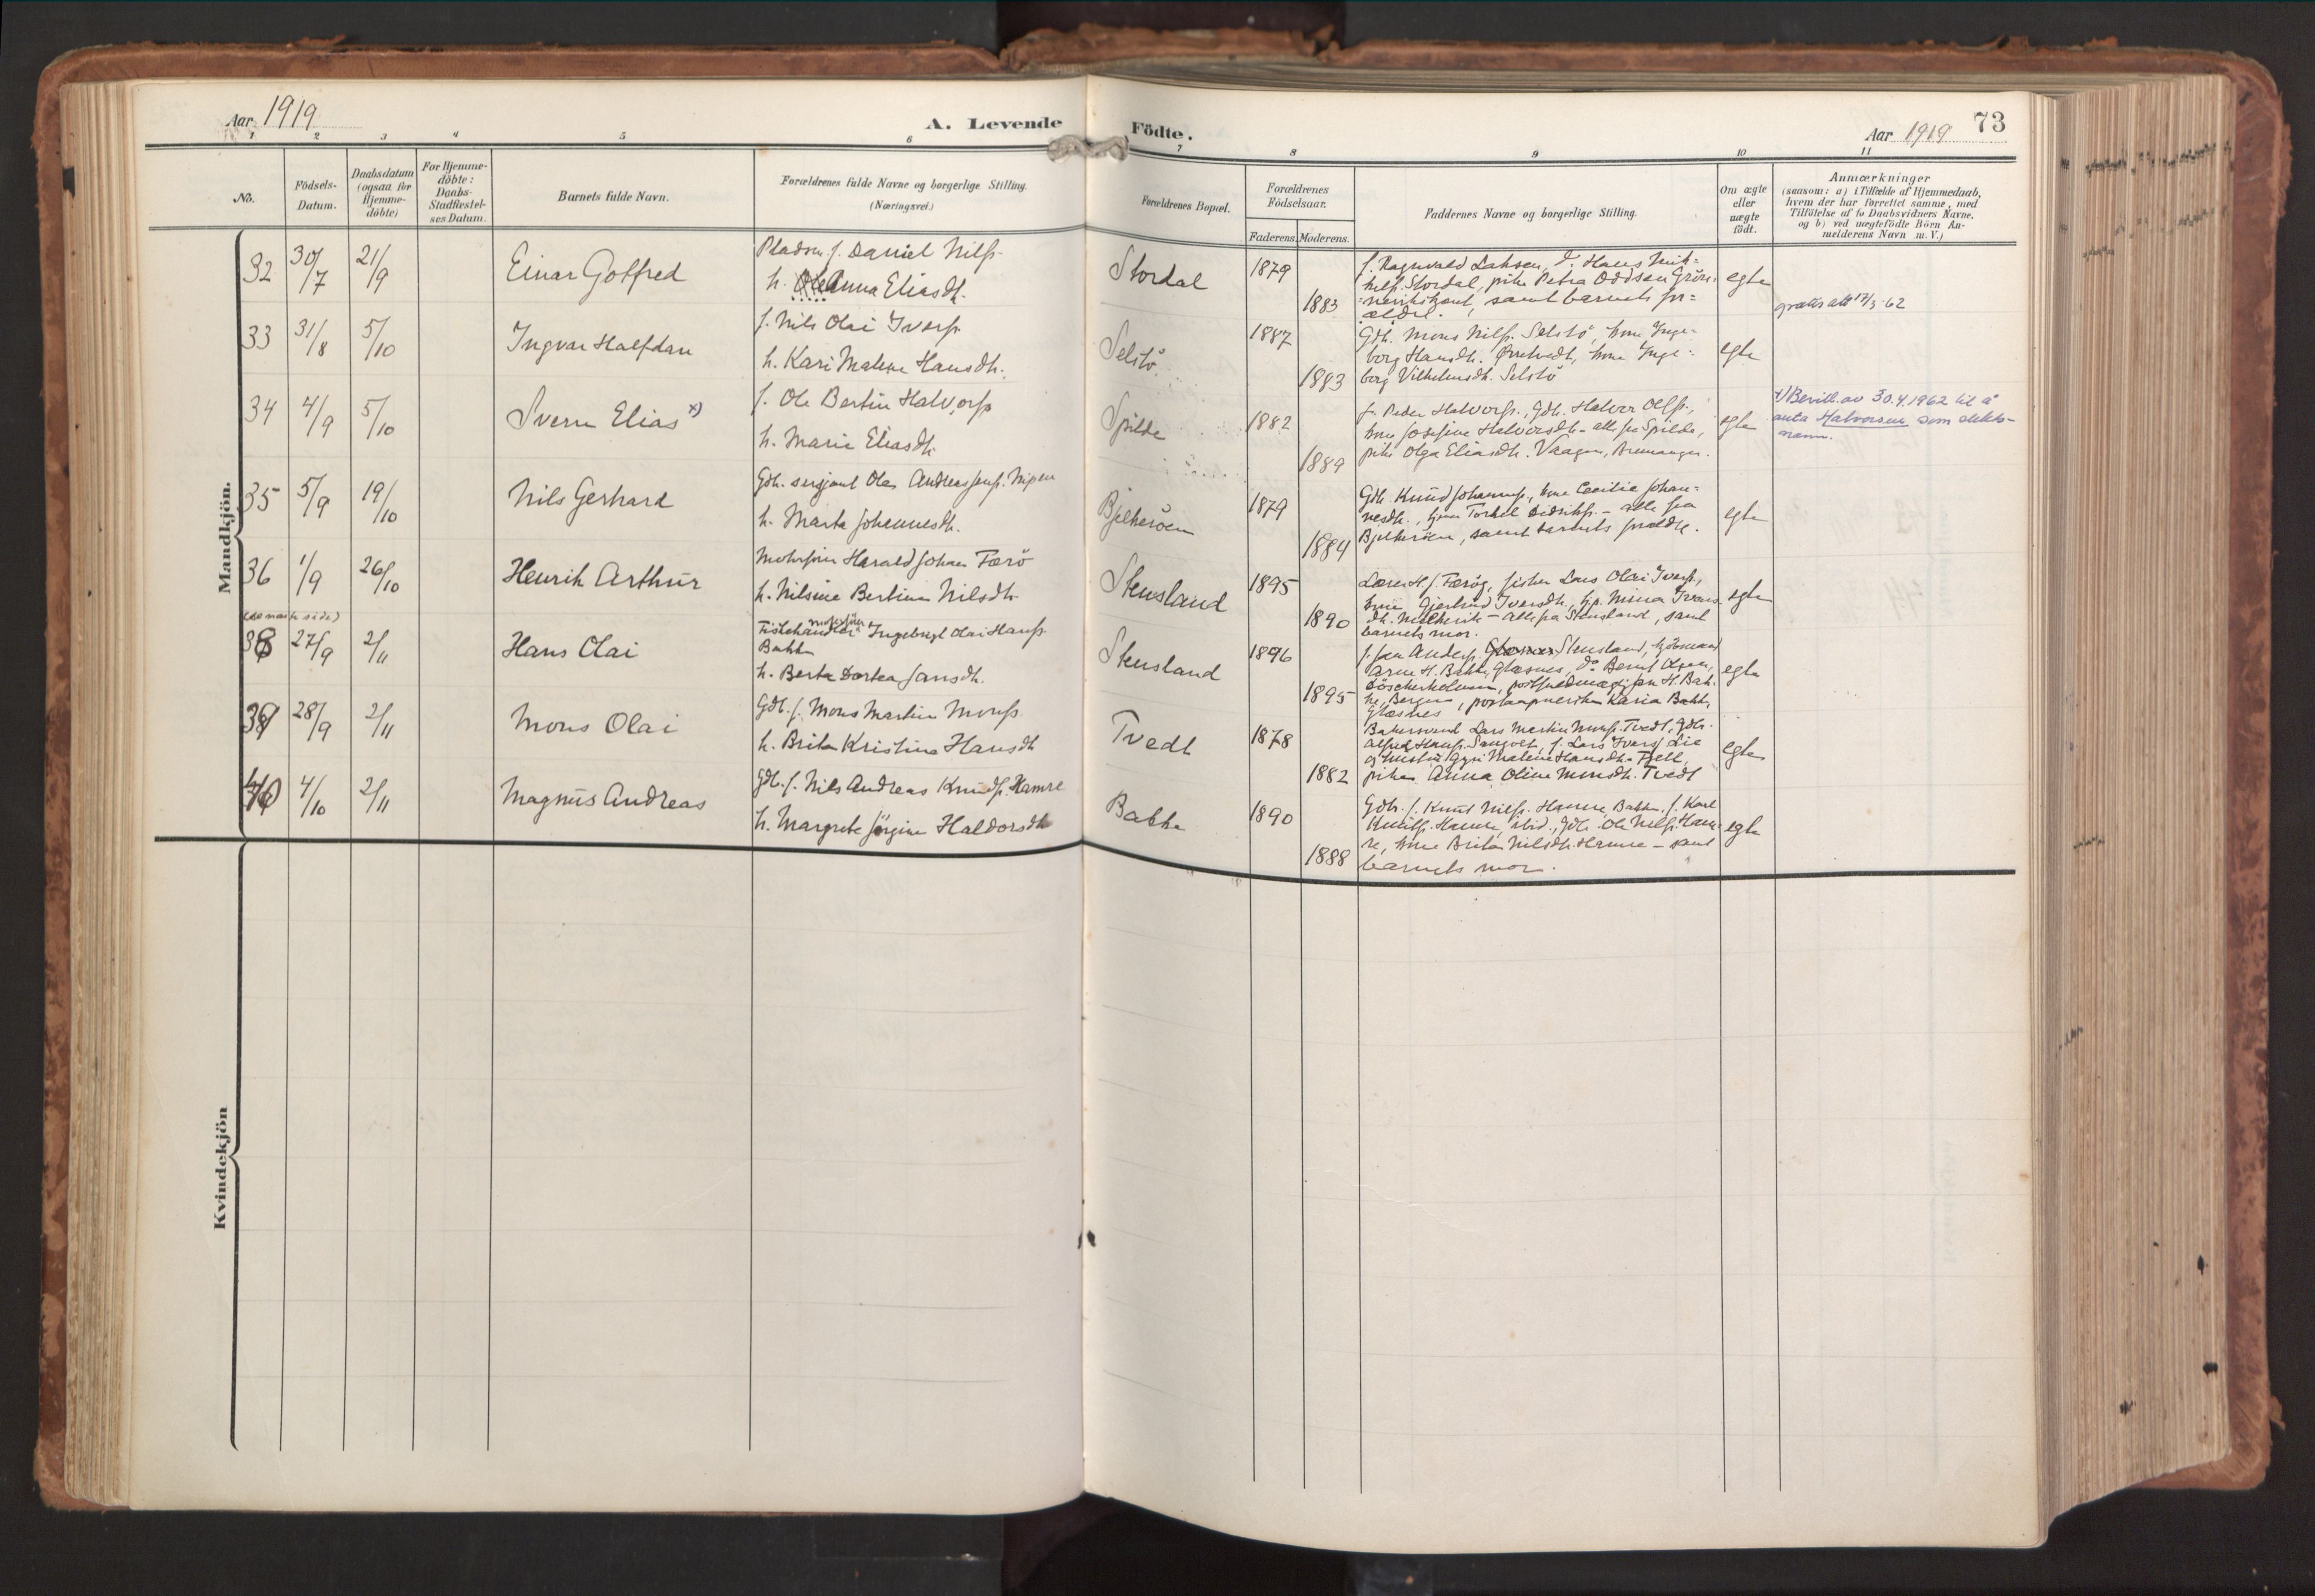 Aar 1919
A. Levende
Födte.
Aar 1919
73
1 2 3 4 5 6 7 8 9 10 11
No.
Födsels-
Datum.
Daabsdatum
(ogsaa for
Hjemme-
döbte)
For Hjemme-
döbte:
Daabs-
Stadfæstel-
ses Datum.
Barnets fulde Navn.
Forældrenes fulde Navne og borgerlige Stilling.
(Næringsvei.)
Forældrenes Bopæl.
Forældrenes
Födselsaar.
Faderens. Moderens.
Faddernes Navne og borgerlige Stilling.
Om ægte
eller
uægte
födt.
Anmærkninger
(saasom: a) i Tilfælde af Hjemmedaab,
hvem der har forrettet samme, med
Tilföielse af to Daabsvidners Navne,
og b) ved uægtefödte Börn An-
melderens Navn m. V.)
Mandkjön.
32 30/7 21/9
Einar Gotfred
Pladsm. f. Daniel Nilss.
h. Anna Eliasdt.
Stordal
1879
1883
f. Ragnvald Laksen, Do. Hans Mik-
kels. Stordal, pike Petra Oddsen Grön-
samt barnets for-
ældre.
egte
attest 17/3 62
33 31/8 5/10
Ingvar Halfdan
f. Nils Olai Iverss.
h. Kari Malene Hansdt.
Selstö
1887
1883
Gdb. Mons Nilss. Selstö, kone Inge-
borg Hansdt. kone Inge-
borg Vilhelmsdt. Selstö
egte
34 4/9 5/10
Sverre Elias x)
f. Ole Bertin Halvorss.
h. Marie Eliasdt.
Spilde
1882
1889
f. Peder Halvorss., Gdb. Halvor Olss.,
kone Josefine Halvorsdt. - alle fra Spilde,
pike Olga Eliasdt. Vaagen, Bremanger.
egte
x) Bevill. av 30.4.1962 til å
anta Halvorsen som slekts-
navn.
35 5/9 19/10
Nils Gerhard
Gdb. sersjant Ole Andreas Jenss. Nipen
h. Marta Johannesdt.
Bjelkeröen
1879
1884
Gdb. Knud Johanness., kone Cecilie Johan-
nesdt., Torkel Didrikss. - alle fra
Bjelkeröen, samt barnets forældre.
egte
36 1/9 26/10
Henrik Arthur
Motorförer Harald Johan Færö
h. Nilsine Bertine Nilsdt.
Stensland
1895
1890
Lærer H. J. Færöy, fisker Lars Olai Iverss.,
kone Gjertrud Iversdt., hp. Nina Ivars-
dt. - alle fra Stensland, samt
barnets mor.
egte
(se næste side)
38 27/9 2/11
Hans Olai
Fiskehandler motorförer Ingebrigt Olai Hanss.
Bakke
h. Berta Dortea Jansdt.
Stensland
1896
1895
f. Jan Anderss. Stensland, kjöbmand
Arne H. Bakke, Glæsnes, Do. Bernt Olsen,
Jan H. Bak-
ke, Bergen, Karia Bakke,
Glæsnes
egte
39 28/9 2/11
Mons Olai
Gdb. f. Mons Martin Monss.
h. Brita Kristine Hansdt.
Tvedt
1878
1882
Bakersvend Lars Martin Monss. Tvedt, gdb.
Alfred Hanss. f. Lars Iverss. Lie
og hustru Malene Hansdt. Fjell,
pike Anna Oline Monsdt. Tvedt
egte
40 4/10 2/11
Magnus Andreas
Gdb. f. Nils Andreas Knudss. Hamre
h. Margrete Jörgine Haldorsdt.
Bakke
1890
1888
Gdb. f. Knut Nilss. Hamre, Bakke, f. Karl
Knutss. Hamre, ibid., Gdb. Ole Nilss. Ham-
re, kone Brita Nilsdt. Hamre - samt
barnets mor.
egte
Kvindekjön